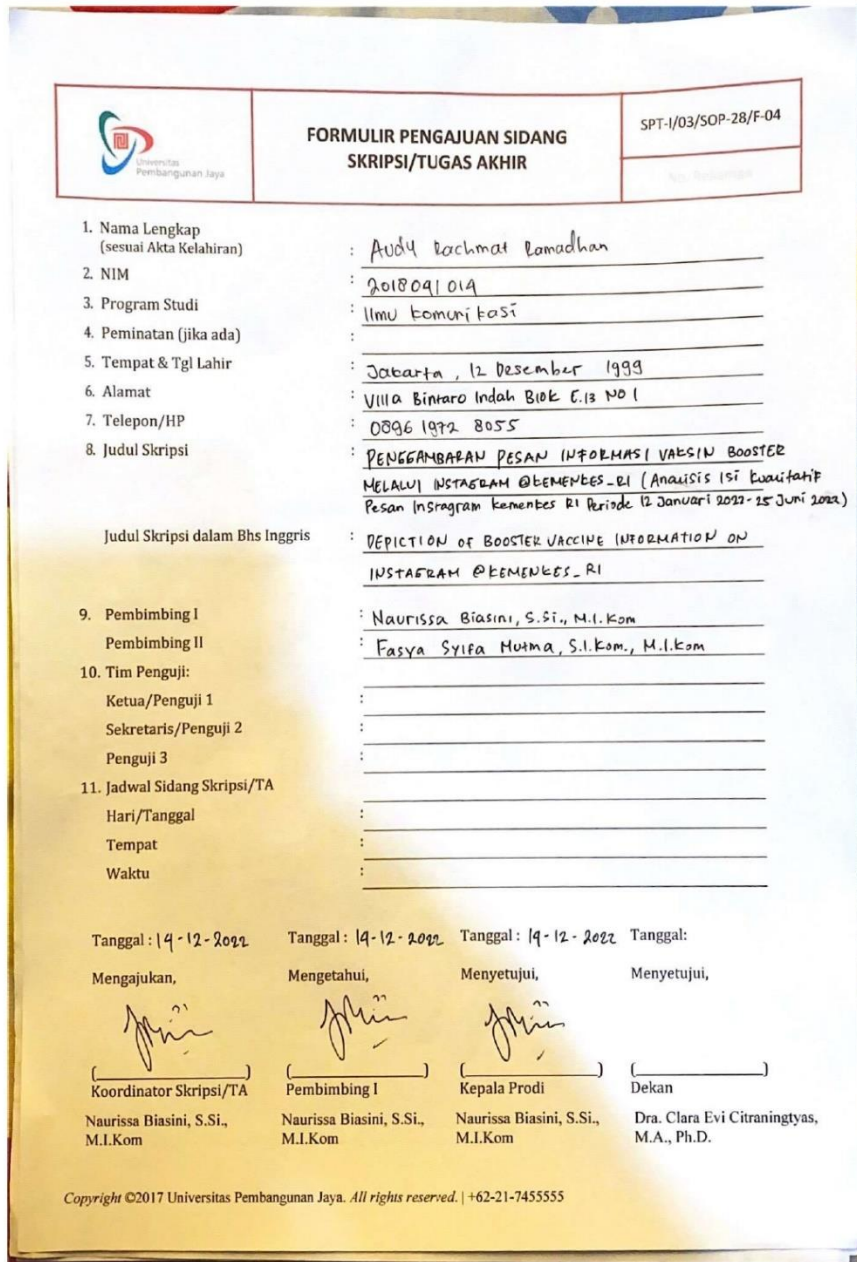 Universitas
Pembangunan Jaya
FORMULIR PENGAJUAN SIDANG
SKRIPSI/TUGAS AKHIR
SPT-I/03/SOP-28/F-04
1. Nama Lengkap
(sesuai Akta Kelahiran) : Audy Rachmat Ramadhan
2. NIM : 2018041014
3. Program Studi : Ilmu komunikasi
4. Peminatan (jika ada) :
5. Tempat & Tgl Lahir : Jakarta, 12 Desember 1999
6. Alamat : Villa Bintaro Indah Blok E.13 NO 1
7. Telepon/HP : 0896 1972 8055
8. Judul Skripsi : PENGGAMBARAN PESAN INFORMASI VAKSIN BOOSTER
MELALUI INSTAGRAM @KEMENKES_RI (Analisis Isi Kualitatif
Pesan Instagram Kemenkes RI Periode 12 Januari 2022-25 Juni 2022)
Judul Skripsi dalam Bhs Inggris : DEPICTION OF BOOSTER VACCINE INFORMATION ON
INSTAGRAM @KEMENKES_RI
9. Pembimbing I : Naurissa Biasini, S.Si., M.I.Kom
Pembimbing II : Fasya Syifa Mutma, S.I.Kom., M.I.Kom
10. Tim Penguji:
Ketua/Penguji 1 :
Sekretaris/Penguji 2 :
Penguji 3 :
11. Jadwal Sidang Skripsi/TA
Hari/Tanggal :
Tempat :
Waktu :
Tanggal : 14-12-2022 Tanggal : 14-12-2022 Tanggal : 14-12-2022 Tanggal:
Mengajukan, Mengetahui, Menyetujui, Menyetujui,
(____) (____) (____) (____)
Koordinator Skripsi/TA Pembimbing I Kepala Prodi Dekan
Naurissa Biasini, S.Si., Naurissa Biasini, S.Si., Naurissa Biasini, S.Si., Dra. Clara Evi Citraningtyas,
M.I.Kom M.I.Kom M.I.Kom M.A., Ph.D.
Copyright ©2017 Universitas Pembangunan Jaya. All rights reserved. | +62-21-7455555